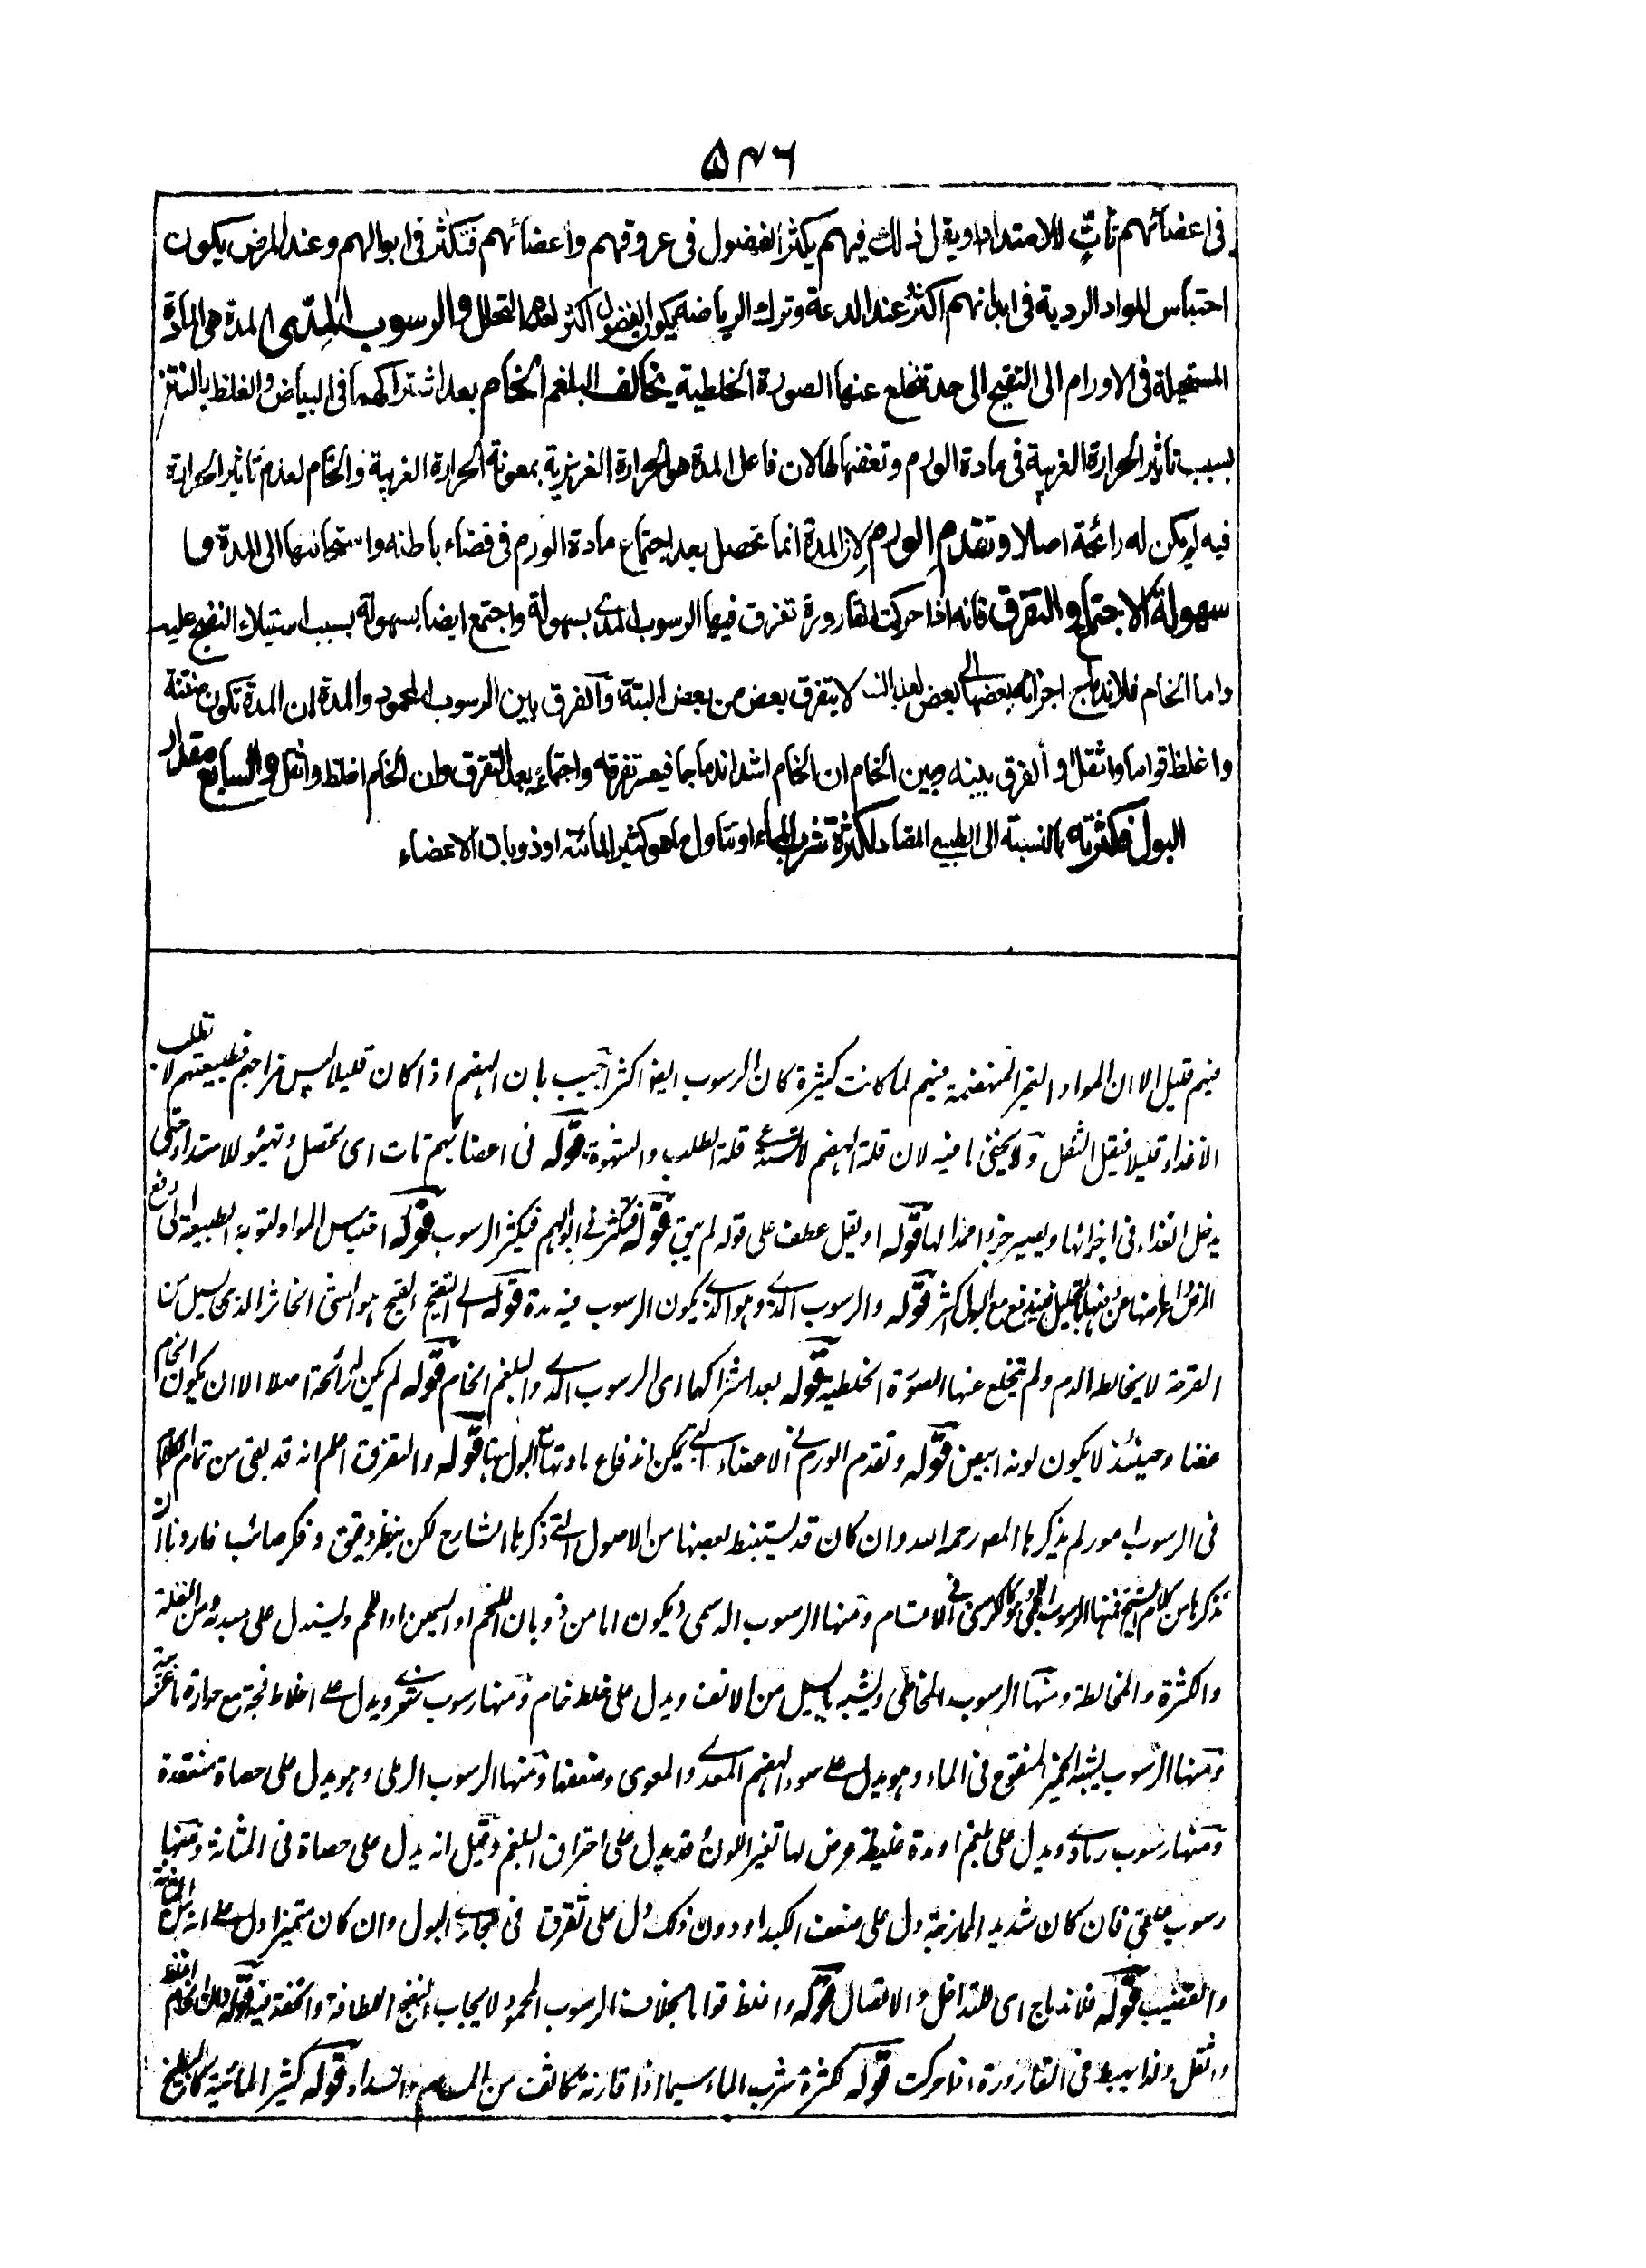 ٥٤٦
فى اعضائهم تأتٍّ للامتداد او يقل ذلك فيهم يكثر الفضول فى عروقهم واعضائهم فتكثر فى ابوالهم وعند المرض يكون
احتباس المواد الردية فى ابدانهم اكثر وعند الدعة وترك الرياضة يكون الفضول اكثر لعدم التحلل والرسوب المِدّى المدة هى المادة
المستحيلة فى الاورام الى التقيح الى حد تنخلع عنها الصورة الخلطية يخالف البلغم الخام بعد اشتراكهما فى البياض والغلظ بالنتن
بسبب تأثير الحرارة الغريبة فى مادة الورم وتعفنها لها لان فاعل المدة هو الحرارة الغريزية بمعونة الحرارة الغريبة والخام لعدم تأثير الحرارة
فيه لم يكن له رائحة اصلا وتقدم الورم لان المدة انما تحصل بعد اجتماع مادة الورم فى فضاء باطنه واستحالتها الى المدة و
سهولة الاجتماع والتفرق فانه اذا حركت القارورة تفرق فيها الرسوب المدى بسهولة واجتمع ايضا بسهولة بسبب استيلاء النضج عليه
واما الخام فلاندماج اجزائه بعضها الى بعض لا يتفرق بعض من بعض البتة والفرق بين الرسوب المحمود والمدة ان المدة تكون منتنة
واغلظ قواما واثقل والفرق بينه وبين الخام ان الخام اشد اندماجا فيعسر تفرقه واجتماعه بعد التفرق وان الخام اغلظ واثقل والسابع مقدار
البول فكثرته بالنسبة الى الطبيعى المعتاد لكثرة شرب الماء او تناول ما هو كثير المائية او ذوبان الاعضاء
فيهم قليل الا ان المواد الغير المنهضمة فيهم لما كانت كثيرة كان الرسوب ايضا اكثر اجيب بان الهضم اذا كان قليلا ليبس مزاجهم فطبيعتهم لا تطلب
الا غذاء قليلا فيقل الثفل ولا يخفى ما فيه لان قلة الهضم لا تستدعى قلة الطلب والشهوة قوله فى اعضائهم تات اى تحصل وتهيئو للامتداد حتى
يدخل الغذاء فى اجزائها ويصير جزوا ممدا لها قوله او يقل عطف على قوله لم يبق قوله فتكثر فى ابوالهم فيكثر الرسوب قوله احتباس المواد لتوجه الطبيعة الى دفع
المرض واعراضها عن دفعها بالتحليل فيندفع مع البول اكثر قوله والرسوب المدى وهو الذى يكون الرسوب فيه مدة قوله الى التقيح القيح هو الشئ الخاثر الذى يسيل من
القرحة لا يخالطه الدم ولم تنخلع عنها الصورة الخلطية قوله بعد اشتراكهما اى الرسوب المدى والبلغم الخام قوله لم يكن له رائحة اصلا الا ان يكون الخام
عفنا وحينئذ لا يكون لونه ابيض قوله وتقدم الورم فى الاعضاء التى يمكن اندفاع مادتها مع البول بها قوله والتفرق اعلم انه قد بقى من تمام الكلام
فى الرسوب امور لم يذكرها المصر رحمه الله وان كان قد يستنبط بعضها من الاصول التى ذكرها الشارح لكن بنظر دقيق وفكر صائب فاردنا ان
نذكرها من كلام الشيخ فمنها الرسوب اللحمى هو كالكرسنى فى الاقسام ومنها الرسوب الدسمى ويكون اما من ذوبان الشحم او السمين او اللحم ويستدل على مبدئه من القلة
والكثرة والمخالطة ومنها الرسوب المخاطى ويشبه ما يسيل من الانف ويدل على خلط خام ومنها رسوب شعرى ويدل على اخلاط فجة مع حرارة نارية
ومنها الرسوب يشبه الخمير المنقوع فى الماء وهو يدل على سوء الهضم المعدى والمعوى وضعفها ومنها الرسوب الرملى وهو يدل على حصاة منعقدة
ومنها رسوب رمادى ويدل على بلغم او مدة غليظة عرض لها تغير اللون وقد يدل على احتراق البلغم وقيل انه يدل على حصاة فى المثانة ومنها
رسوب علقى فان كان شديد الممازجة دل على ضعف الكبد او دون ذلك دل على تفرق فى مجارى البول وان كان متميزا دل على انه من المثانة
والقضيب قوله فلاندماج اى للتداخل والاتصال قوله واغلظ قواما بخلاف الرسوب المحمود لايجاب النضج اللطافة والخفة فيه قوله وان الخام اغلظ
واثقل ولذا يهبط فى القارورة اذا حركت قوله لكثرة شرب الماء سيما اذا قارنه تكاثف من المسام وانسداد قوله كثير المائية كالبطيخ